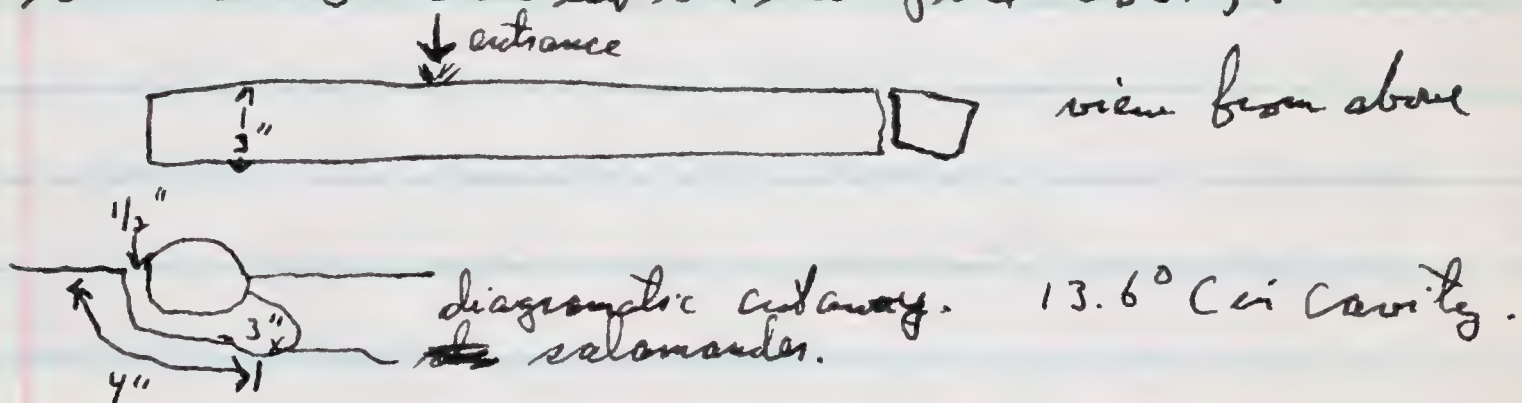 entrance
3"
view from above
1/2"
diagramatic cutaway. 13.6° C in cavity.
3" x salamander.
4"